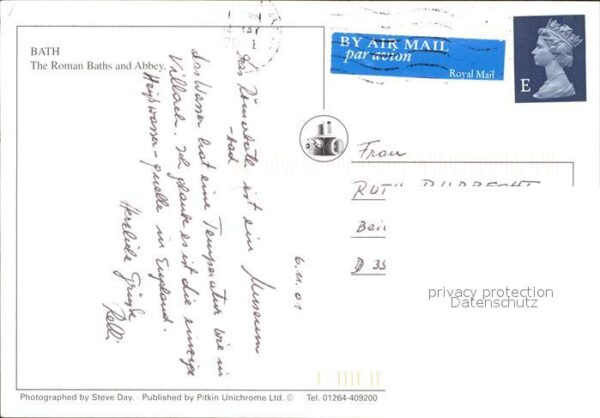 BATH
The Roman Baths and Abbey.
BY AIR MAIL
par avion
Royal Mail
E
Das Römerbad ist ein Museum
-bad
das Wasser hat eine Temperatur wie in
Villach. Ich glaube es ist die einzige
Heißwasser-quelle in England.
Herzliche Grüße
6.11.01
Frau
RUTH
D 35
privacy protection
Datenschutz
Photographed by Steve Day. Published by Pitkin Unichrome Ltd. © Tel. 01264-409200